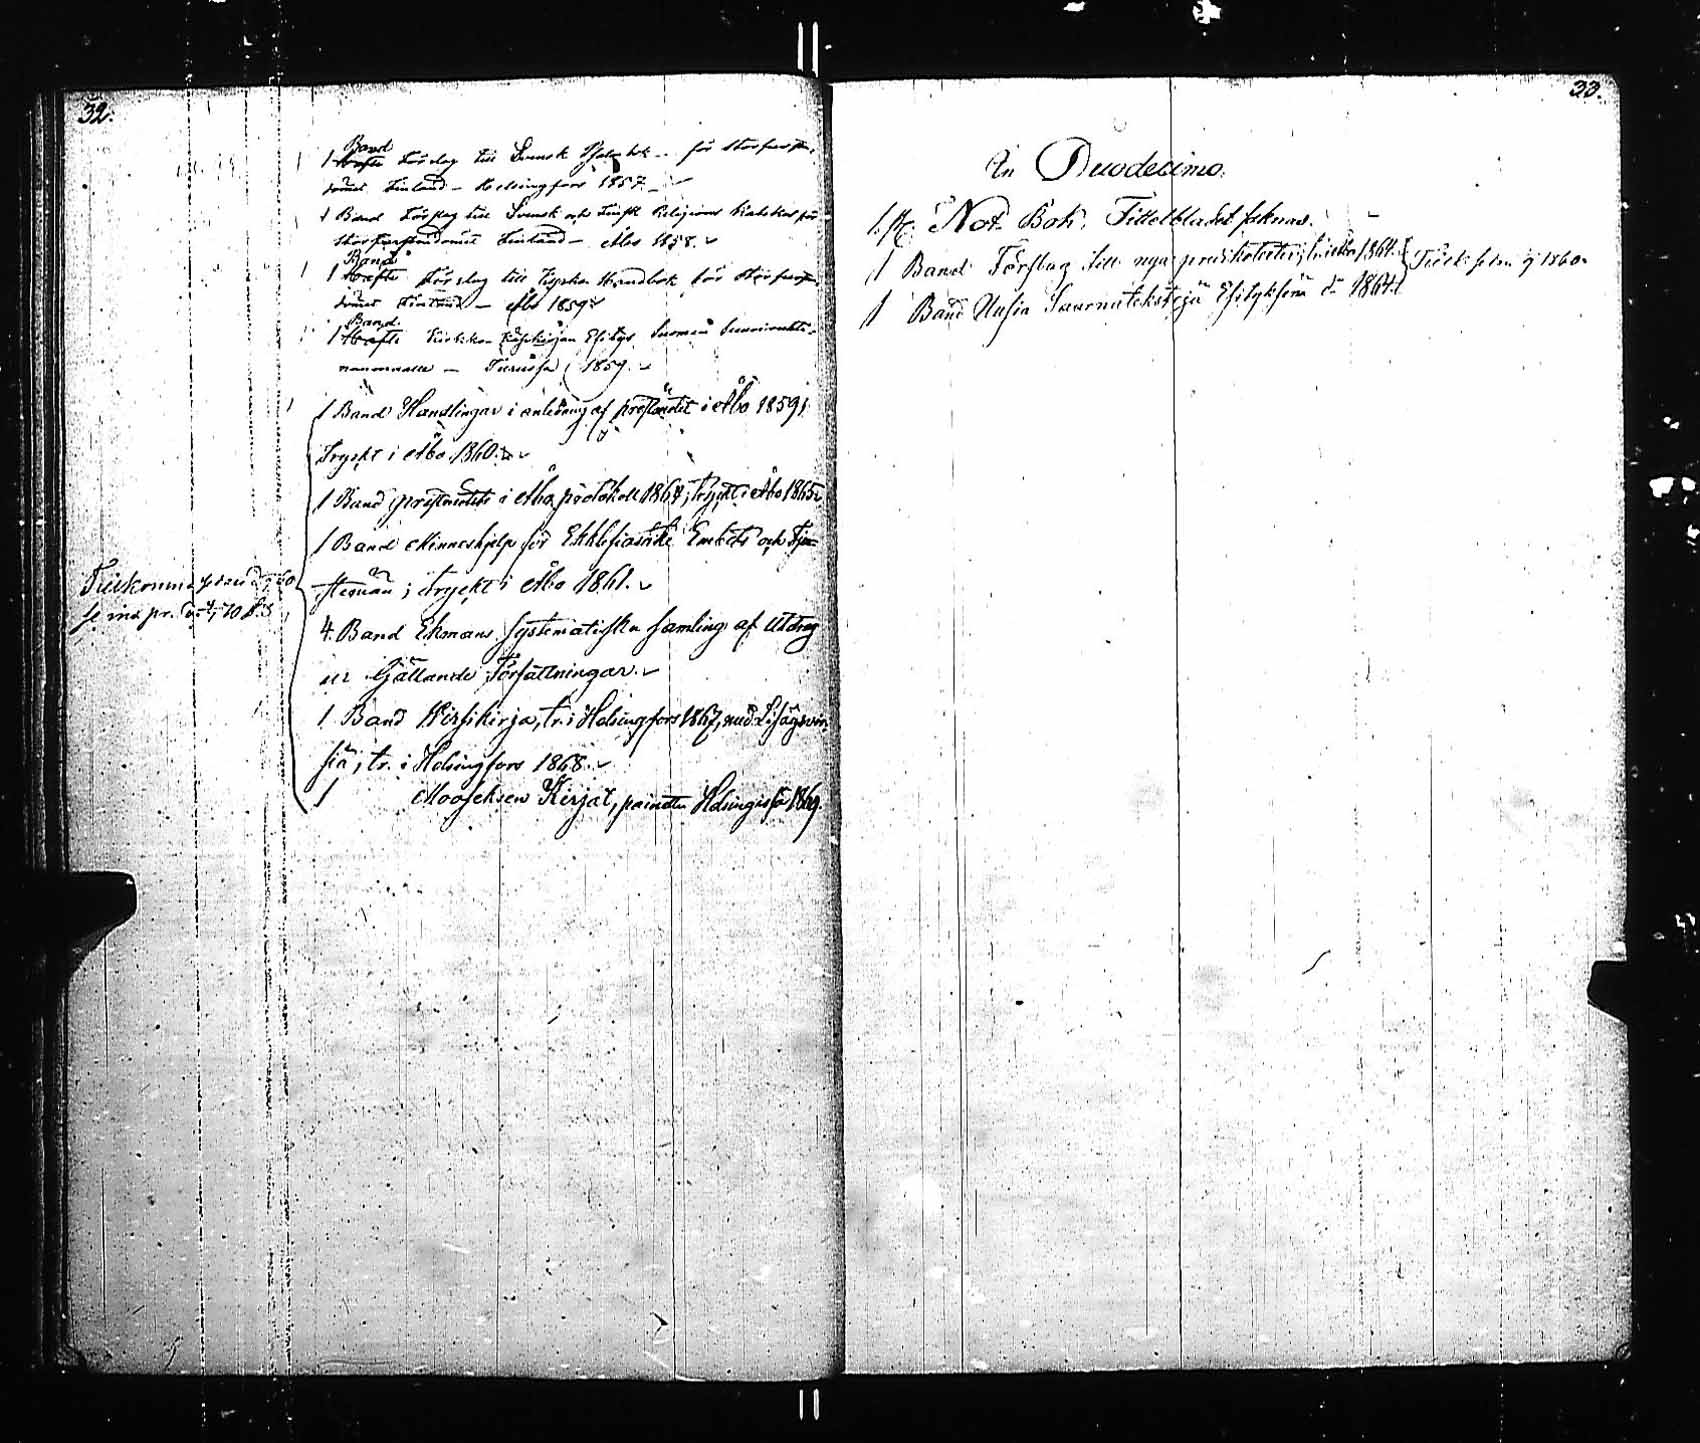 32.
Band
1 Häfte Förslag till Svensk Psalmbok för Storfursten-
dömet Finland – Helsingfors 1857.
1 Band Förslag till Svensk och Finsk Religions Katekes för
Storfurstendömet Finland – Åbo 1858.
Band
1 Häfte Förslag till Kyrko Handbok för Storfursten-
dömet Finland – Åbo 1859.
Band
1 Häfte Kirkko Käsikirjan Esitys Suomen Suuriruhti-
nanmaalle – Turussa 1859.
1 Band Handlingar i anledning af prestmötet i Åbo 1859;
Tryckt i Åbo 1860.
1 Band prestmötets i Åbo protokoll 1864, tryckt i Åbo 1865.
1 Band Minneshjelp för Ekklesiastike Embets och Tje-
stemän; tryckt i Åbo 1861.
4. Band Ekmans Systematiska samling af Utdrag
ur Gällande Författningar.
1 Band Wirsikirja, tr. i Helsingfors 1867, med Lisäyswir-
siä, tr. i Helsingfors 1868.
1 Mooseksen Kirjat, painettu Helsingissä 1869.
Tillkomna sedan 1860
33.
In Duodecimo.
1. St. Not Bok, Tittelbladet saknas.
1 Band Förslag till nya predikotexter; tr. i Åbo 1864. Tillk. sedan 1860.
1 Band Uusia Saarnatekstejä Esityksenä 1864.